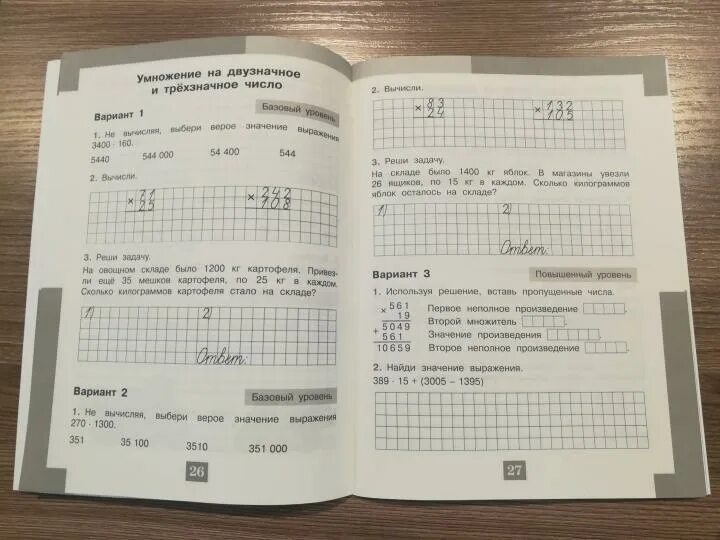 Умножение на двузначное
и трёхзначное число
Вариант 1
Базовый уровень
1. Не вычисляя, выбери верое значение выражения
3400 · 160.
5440 544 000 54 400 544
2. Вычисли.
× 71
25
× 242
108
3. Реши задачу.
На овощном складе было 1200 кг картофеля. Привез-
ли ещё 35 мешков картофеля, по 25 кг в каждом.
Сколько килограммов картофеля стало на складе?
1) 2)
Ответ:
Вариант 2
Базовый уровень
1. Не вычисляя, выбери верое значение выражения
270 · 1300.
351 35 100 3510 351 000
26
2. Вычисли.
× 83
24
× 132
105
3. Реши задачу.
На складе было 1400 кг яблок. В магазины увезли
26 ящиков, по 15 кг в каждом. Сколько килограммов
яблок осталось на складе?
1) 2)
Ответ:
Вариант 3
Повышенный уровень
1. Используя решение, вставь пропущенные числа.
× 561
19
+ 5049
561
10659
Первое неполное произведение .
Второй множитель .
Значение произведения .
Второе неполное произведение .
2. Найди значение выражения.
389 · 15 + (3005 − 1395)
27